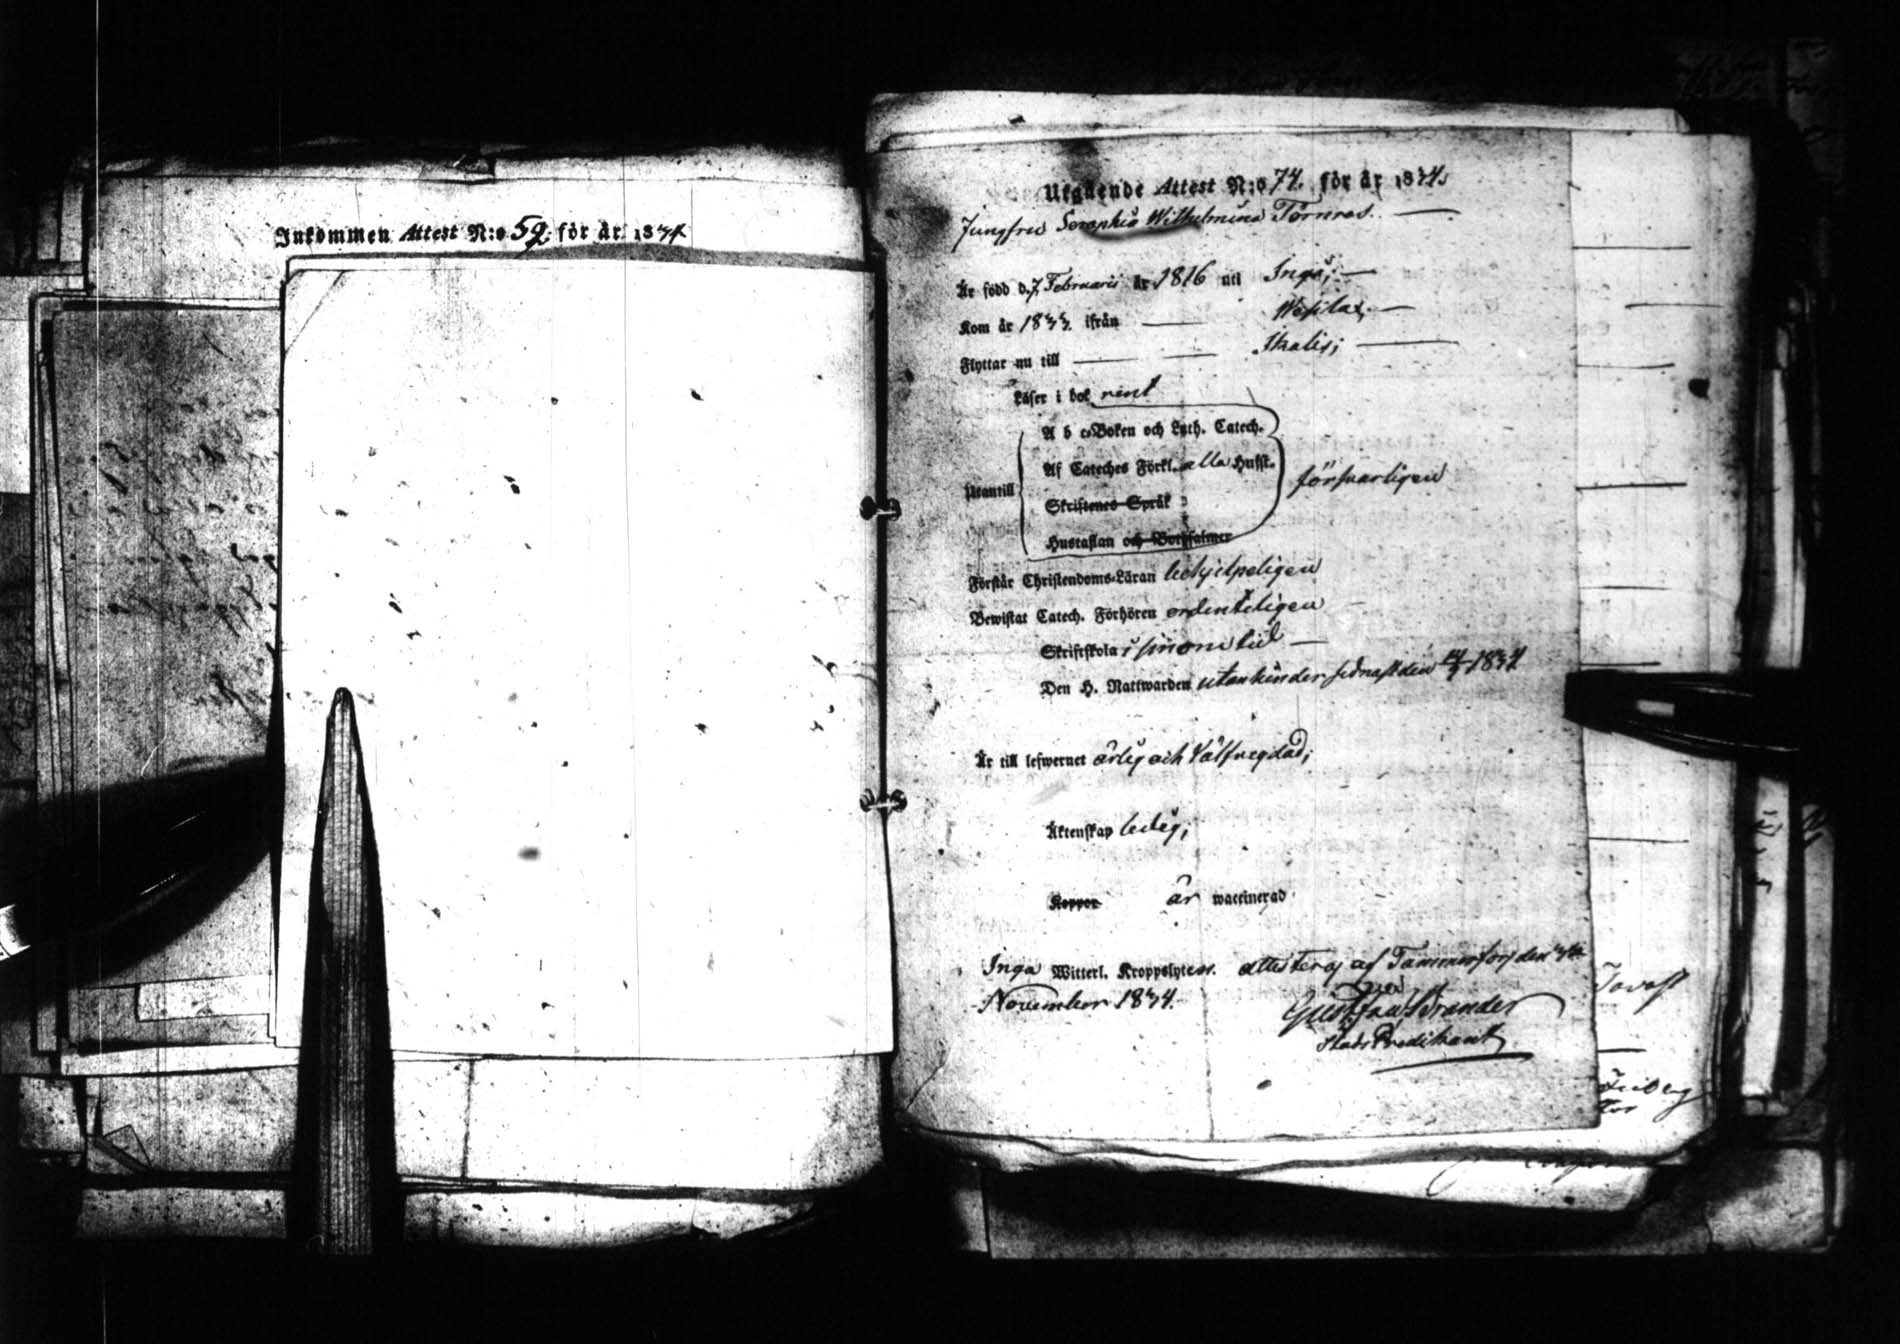 Inkommen Attest N:o 59. för år 1834
Utgående Attest N:o 74. för år 1834.
Jungfru Seraphia Wilhelmina Törnros.
Är född d. 7 Februarii år 1816 uti Ingå;
Kom år 1833. ifrån Wesilax;
Flyttar nu till Ikalis;
Läser i bok rent
A b c-Boken och Luth. Catech.
Af Cateches Förkl. alla Hufst.
Utantill försvarligen
Skriftenes Språk
Hustaflan och Botpsalmer
Förstår Christendoms-Läran behjelpeligen
Bewistat Catech. Förhören ordenteligen
Skriftskola i sinom tid
Den H. Nattwarden utan hinder sednast den 1834
Är till lefwernet ärlig och välfregdad;
Äktenskap ledig;
Koppor är waccinerad
Inga Witterl. Kroppslyten. attesteras af Tammerfors den
November 1834.
Gust. Brander
Stads Predikant
Tavast